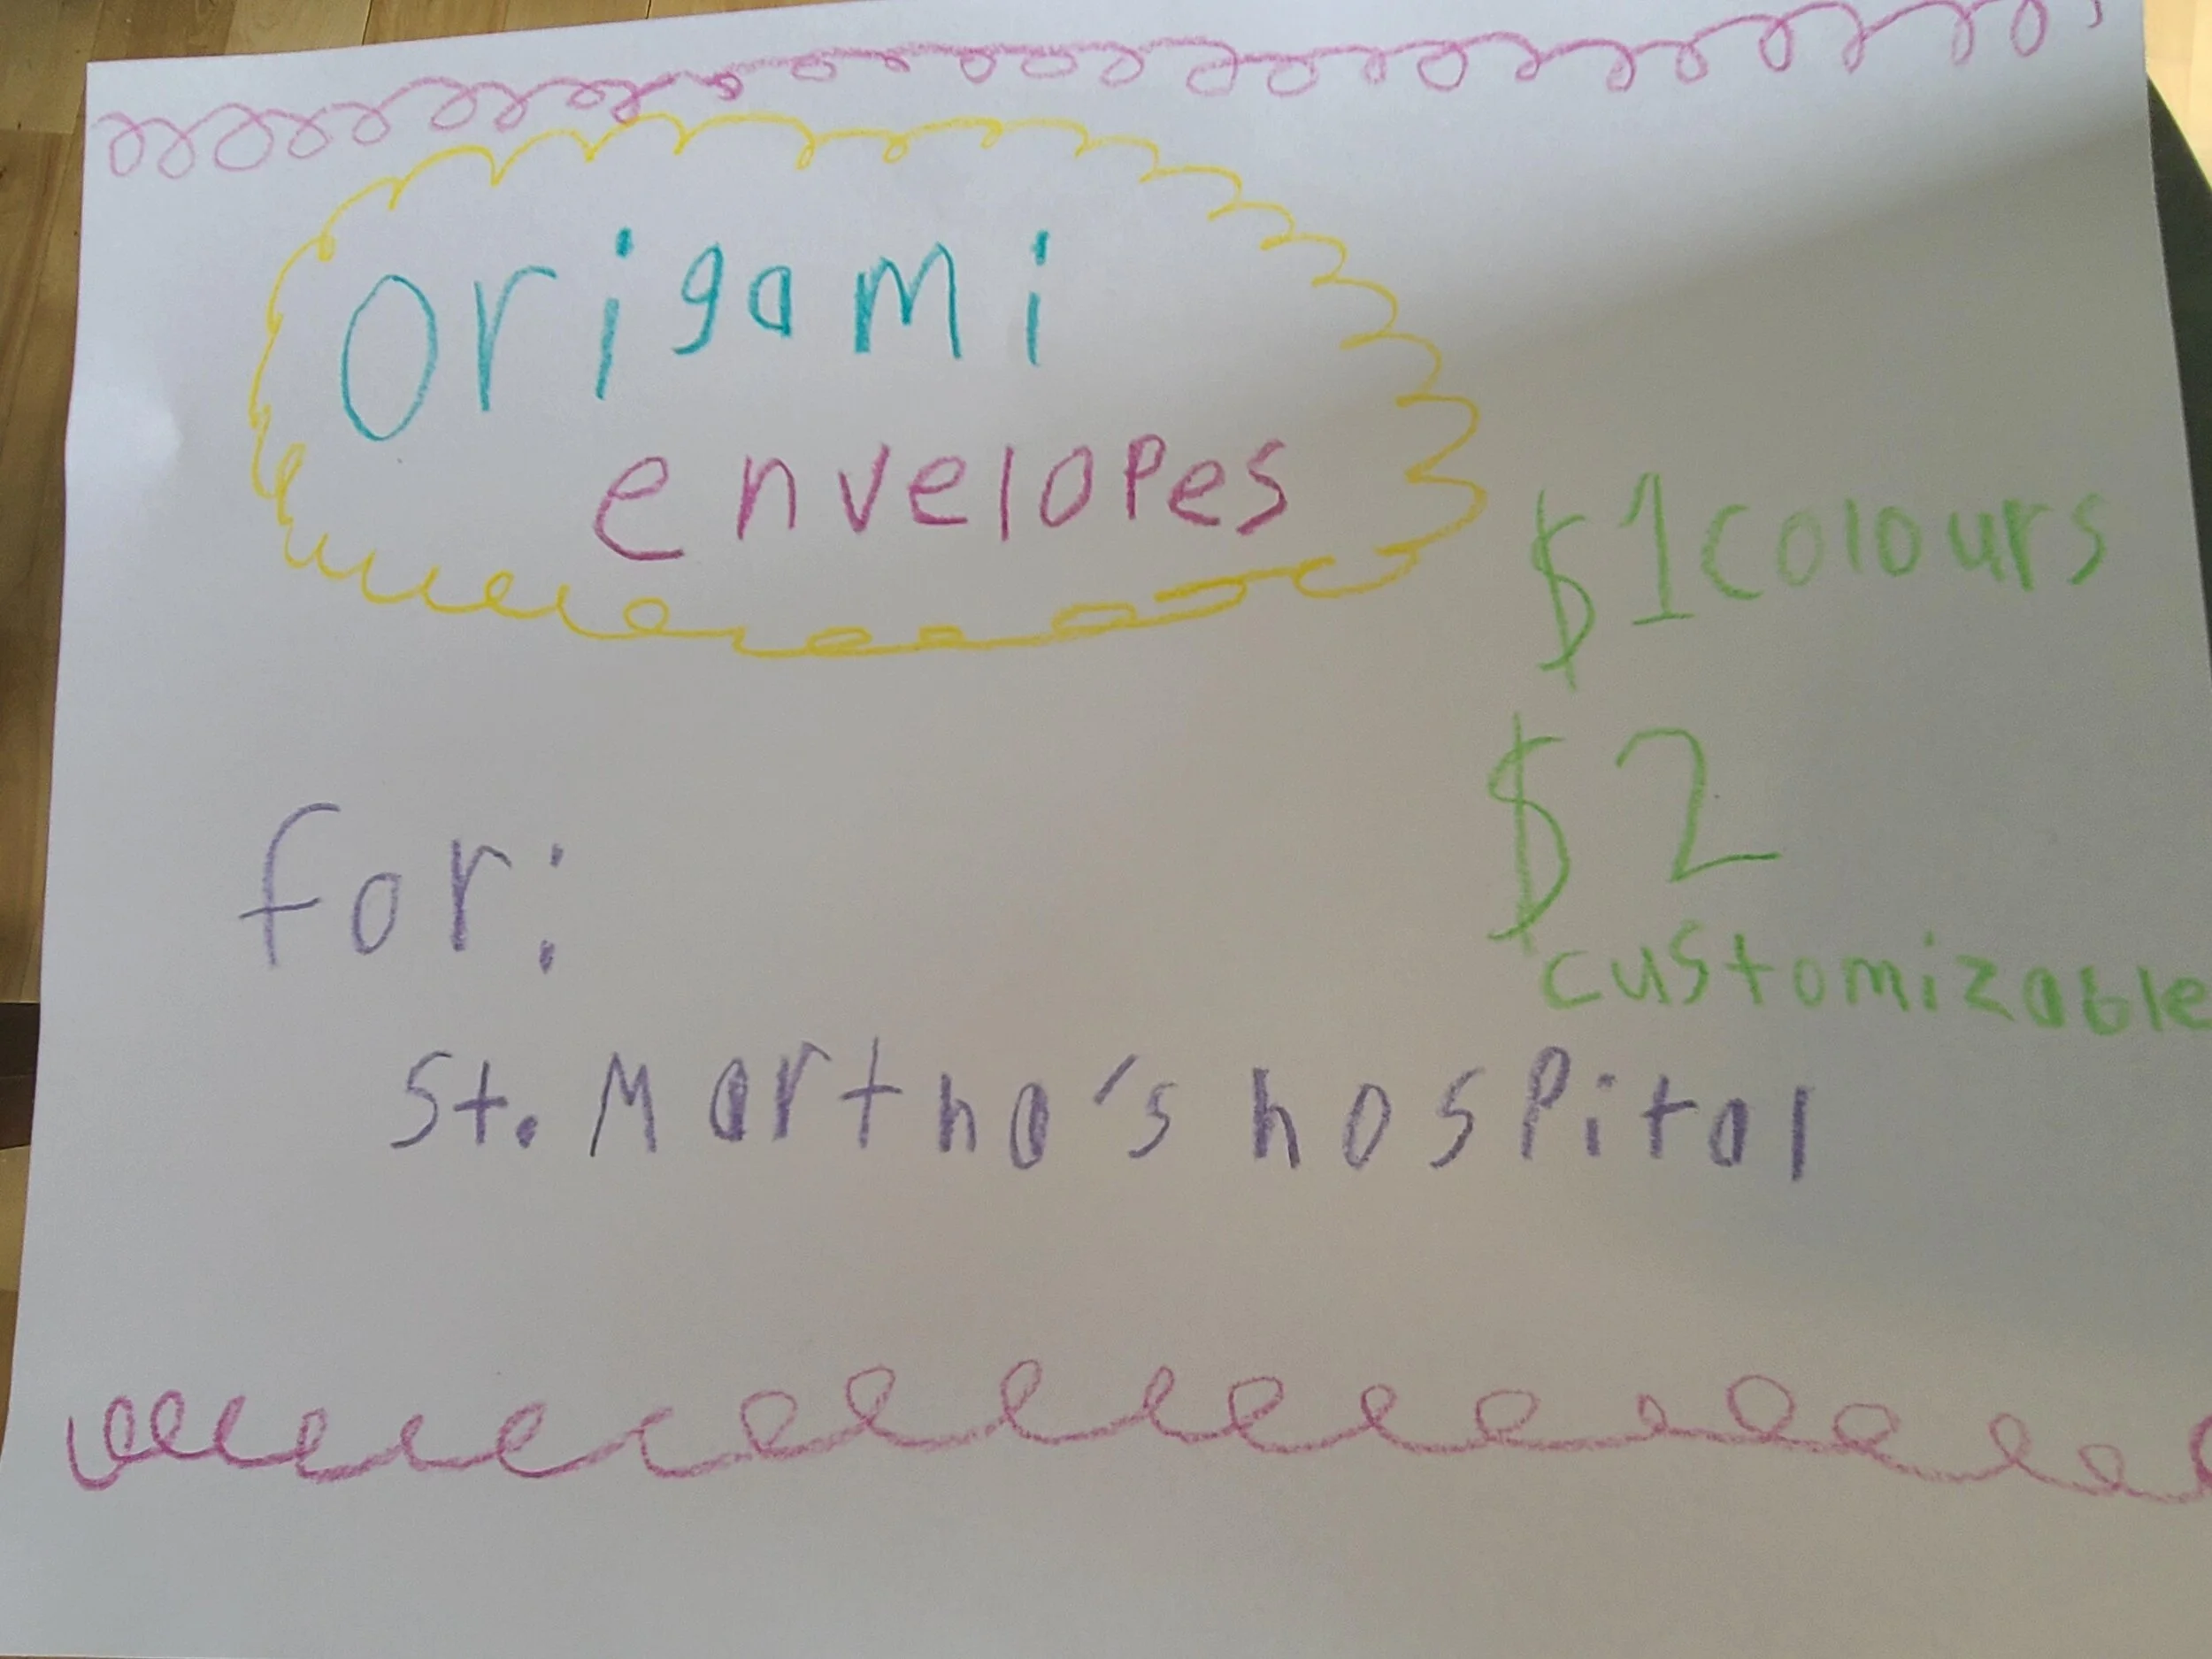 origami
envelopes
$1 colours
$2
customizable
for:
St. Martha's hospital